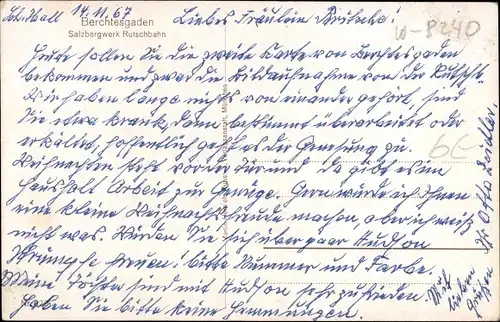 Sch. Hall 14.11.67
Berchtesgaden
Salzbergwerk Rutschbahn
Liebes Fräulein
W-8240
Heute sollen Sie die zweite Karte von Berchtesgaden
bekommen und zwar die Bildaufnahme von der Rutschb.
Wir haben lange nichts voneinander gehört, sind
Sie etwa krank, dann bestimmt überarbeitet oder
erkältet, hoffentlich geht es der Genesung zu.
6€
Weihnachten steht vor der Tür und da gibt es im
Haushalt Arbeit zur Genüge. Gern würde ich Ihnen
eine kleine Weihnachtsfreude machen, aber ich weiß
nicht was. Würden Sie sich über paar Hudson
Strümpfe freuen! Bitte Nummer und Farbe.
Meine Töchter sind mit Hudson sehr zufrieden.
Haben Sie bitte keine Hemmungen.
Mit
lieben
Grüßen
Ihr Otto